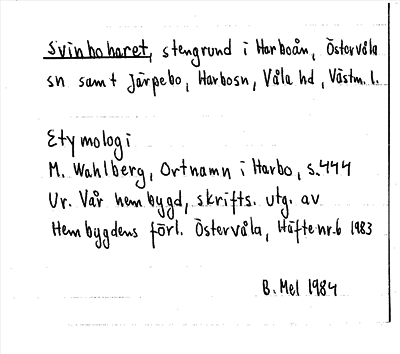 Svinhoharet, stengrund i Harboån, Östervåla
sn samt Järpebo, Harbosn, Våla hd, Västm. l.
Etymologi
M. Wahlberg, Ortnamn i Harbo, s. 444
Ur. Vår hembygd, skrifts. utg. av
Hembygdens förl. Östervåla, Häfte nr. 6 1983
B. Mel 1984